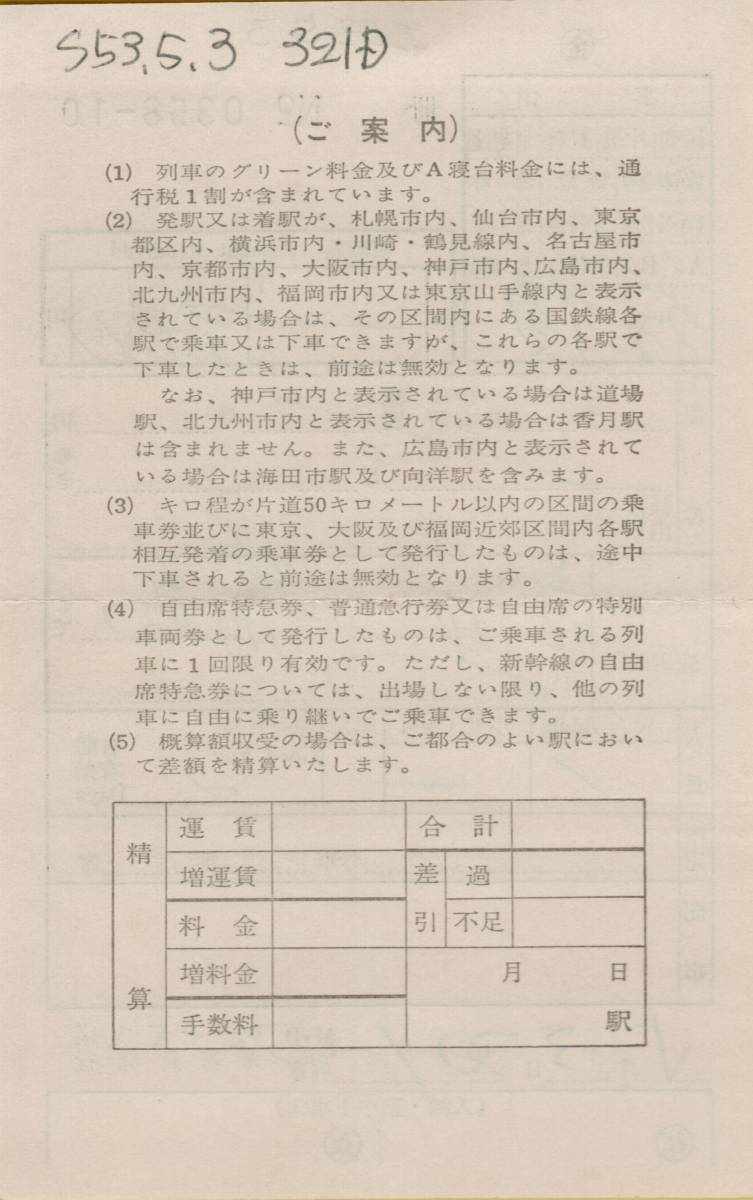 S53.5.3 321D
(ご案内)
(1) 列車のグリーン料金及びA寝台料金には、通
行税1割が含まれています。
(2) 発駅又は着駅が、札幌市内、仙台市内、東京
都区内、横浜市内・川崎・鶴見線内、名古屋市
内、京都市内、大阪市内、神戸市内、広島市内、
北九州市内、福岡市内又は東京山手線内と表示
されている場合は、その区間内にある国鉄線各
駅で乗車又は下車できますが、これらの各駅で
下車したときは、前途は無効となります。
なお、神戸市内と表示されている場合は道場
駅、北九州市内と表示されている場合は香月駅
は含まれません。また、広島市内と表示されて
いる場合は海田市駅及び向洋駅を含みます。
(3) キロ程が片道50キロメートル以内の区間の乗
車券並びに東京、大阪及び福岡近郊区間内各駅
相互発着の乗車券として発行したものは、途中
下車されると前途は無効となります。
(4) 自由席特急券、普通急行券又は自由席の特別
車両券として発行したものは、ご乗車される列
車に1回限り有効です。ただし、新幹線の自由
席特急券については、出場しない限り、他の列
車に自由に乗り継いでご乗車できます。
(5) 概算額収受の場合は、ご都合のよい駅におい
て差額を精算いたします。
精算
運賃 合計
増運賃 差引 過
料金 不足
増料金 月 日
手数料 駅
No 0358-10